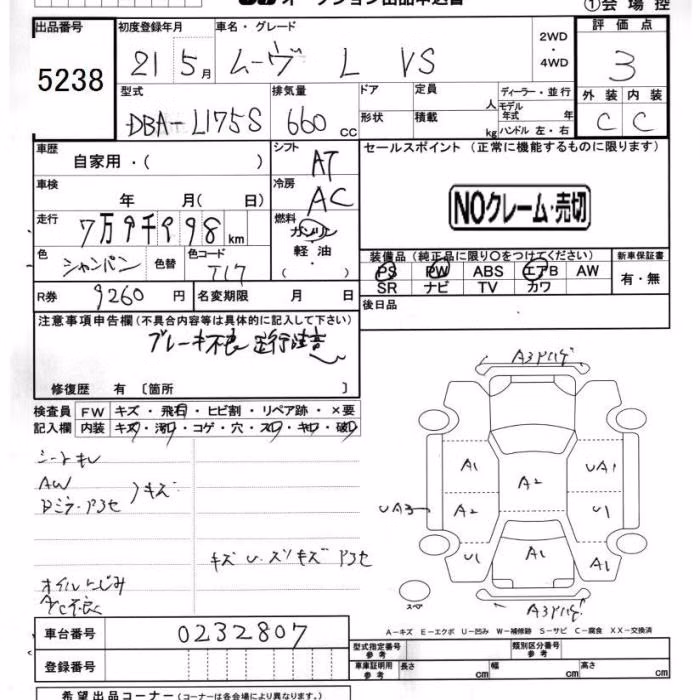 オークション出品申込書
①会場控
出品番号 5238
初度登録年月 21 5月
車名・グレード ムーヴ L VS
2WD・4WD
評価点 3
型式 DBA-L175S
排気量 660 CC
ドア 定員 人
形状 積載 kg
ディーラー・並行
モデル年式 年
ハンドル 左・右
外装 内装
C C
車歴 自家用・( )
シフト AT
セールスポイント (正常に機能するものに限ります)
NOクレーム・売切
車検 年 月( 日)
冷房 AC
走行 7万9千998 km
燃料 ガソリン 軽油 ・( )
色 シャンパン 色替 色コード T17
装備品 (純正品に限り○をつけてください) 新車保証書
PS PW ABS エアB AW 有・無
SR ナビ TV カワ
R券 9260 円 名変期限 月 日
後日品
注意事項申告欄 (不具合内容等は具体的に記入して下さい)
ブレーキ不良 走行注意
修復歴 有 〔箇所 〕
検査員 FW キズ・飛石・ヒビ割・リペア跡・×要
記入欄 内装 キズ・汚レ・コゲ・穴・スレ・キレ・破レ
シートキレ
AW
Dミラー アワセ
キズ
キズ U スリキズ アワセ
オイルにじみ
A/C不良
A3
A1
UA1
A2
UA3
A2
U1
U1
A1
A1
スペア
A3
A-キズ E-エクボ U-凹み W-補修跡 S-サビ C-腐食 XX-交換済
車台番号 0232807
登録番号
型式指定番号 参考
類別区分番号 参考
車庫証明用 参考 長さ cm 幅 cm 高さ cm
希望出品コーナー (コーナーは各会場により異なります。)